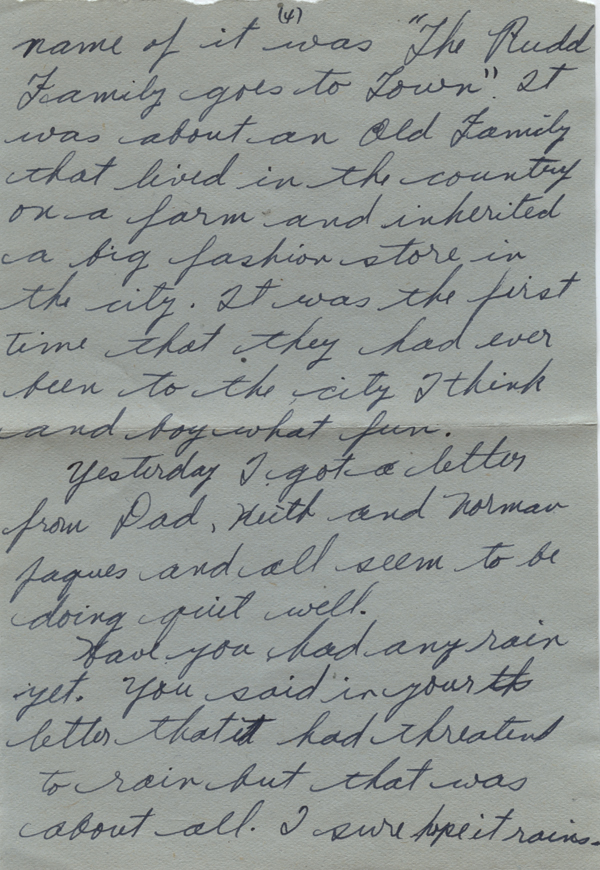 (4)
name of it was "The Rudd
Family goes to Town". It
was about an Old Family
that lived in the country
on a farm and inherited
a big fashion store in
the city. It was the first
time that they had ever
been to the city I think
and boy what fun.
Yesterday I got a letter
from Dad, Keith and Norman
Jaques and all seem to be
doing quit well.
Have you had any rain
yet. You said in your
letter that it had threatend
to rain but that was
about all. I sure hope it rains.